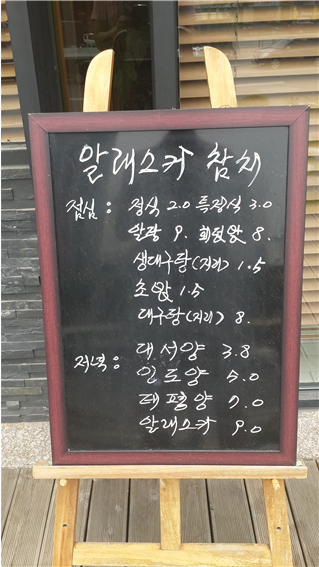 알래스카 참치
점심 : 정식 2.0 특정식 3.0
알탕 9. 회덮밥 8.
생대구탕(지리) 1.5
초밥 1.5
대구탕(지리) 8.
저녁 : 대서양 3.8
인도양 5.0
태평양 7.0
알래스카 9.0